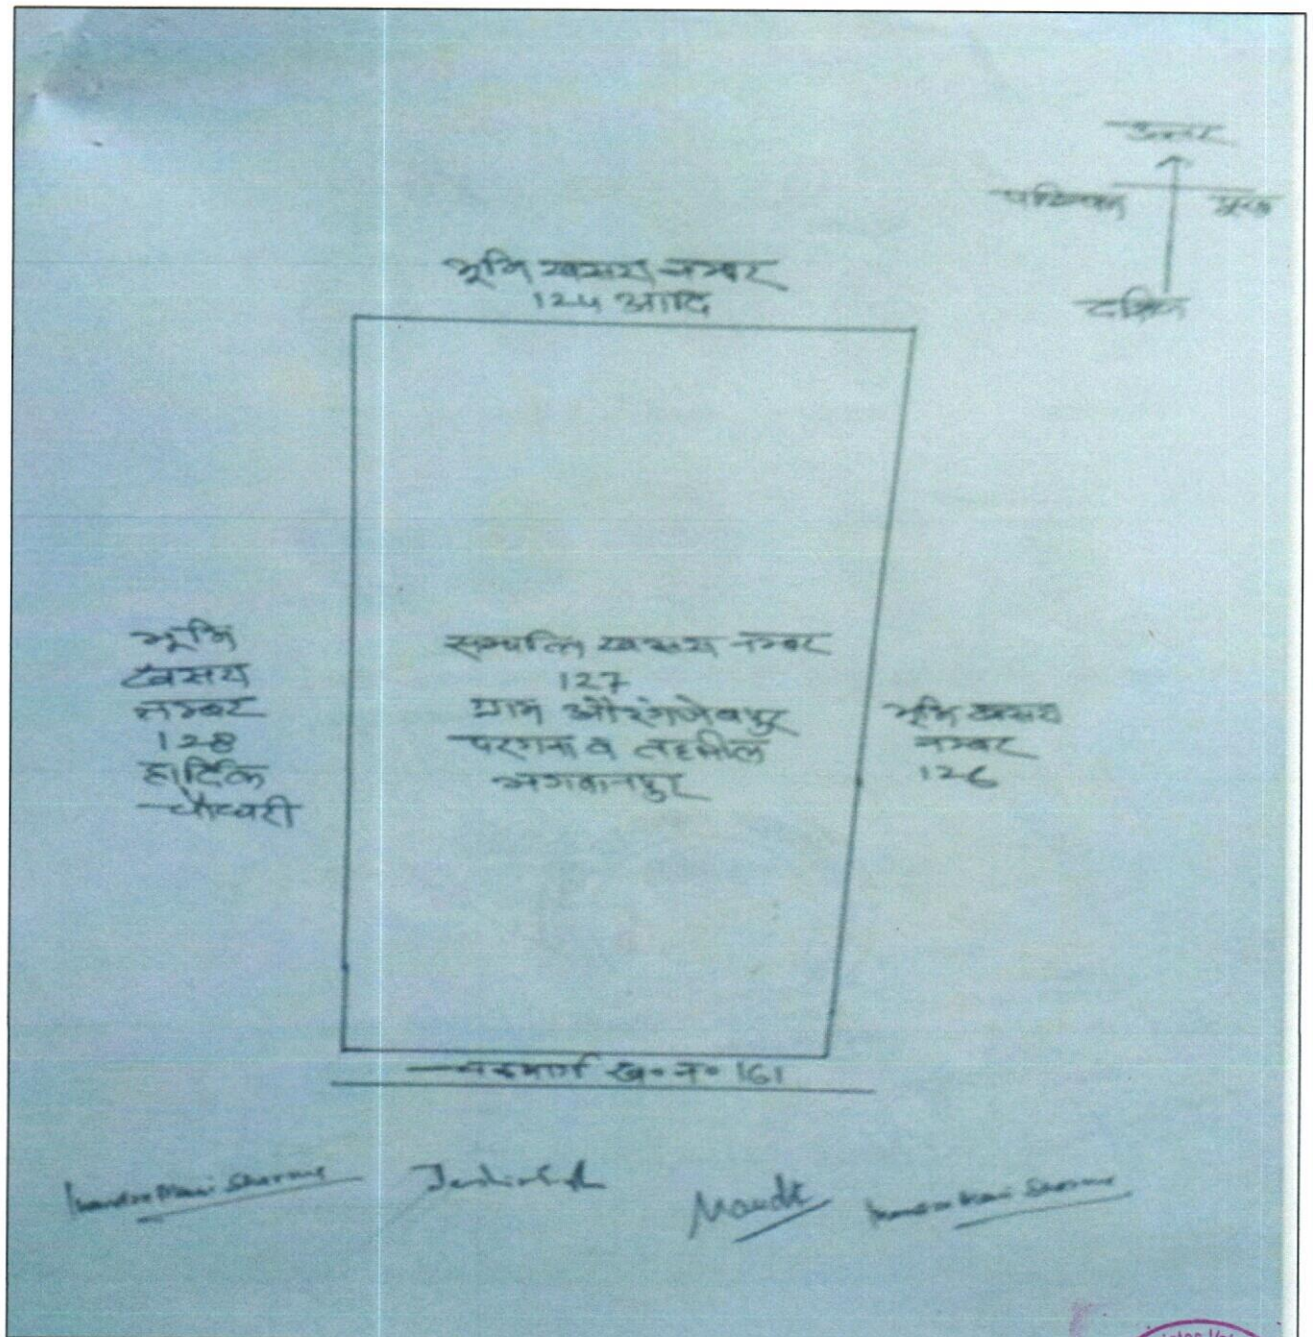 उत्तर
पश्चिम पूरब
दक्षिण
भूमि खसरा नम्बर
124 आदि
भूमि
खसरा
नम्बर
128
हार्दिक
चौधरी
सम्पत्ति खसरा नम्बर
127
ग्राम औरंगजेबपुर
परगना व तहसील
भगवानपुर
भूमि खसरा
नम्बर
126
चकमार्ग ख॰ न॰ 161
Mani Sharma
Mani Sharma